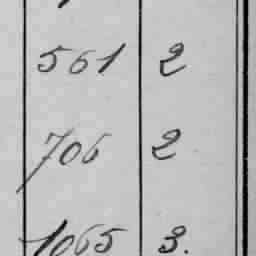 561 2
706 2
1065 3.